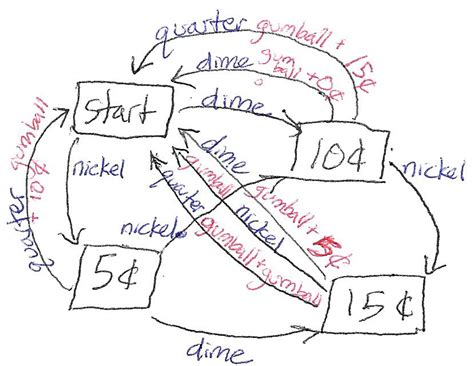 quarter gumball + 15¢
dime gumball + 0¢
start
dime
10¢
quarter gumball + 10¢
nickel
nickel
dime gumball + 5¢
nickel gumball
quarter gumball + gumball
nickel
5¢
15¢
dime